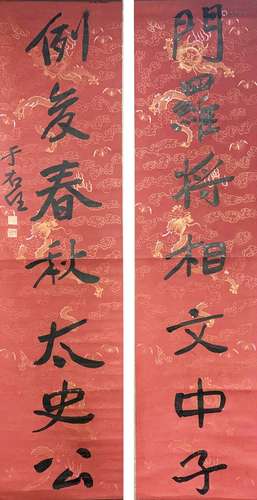 門羅將相文中子
例發春秋太史公
于右任